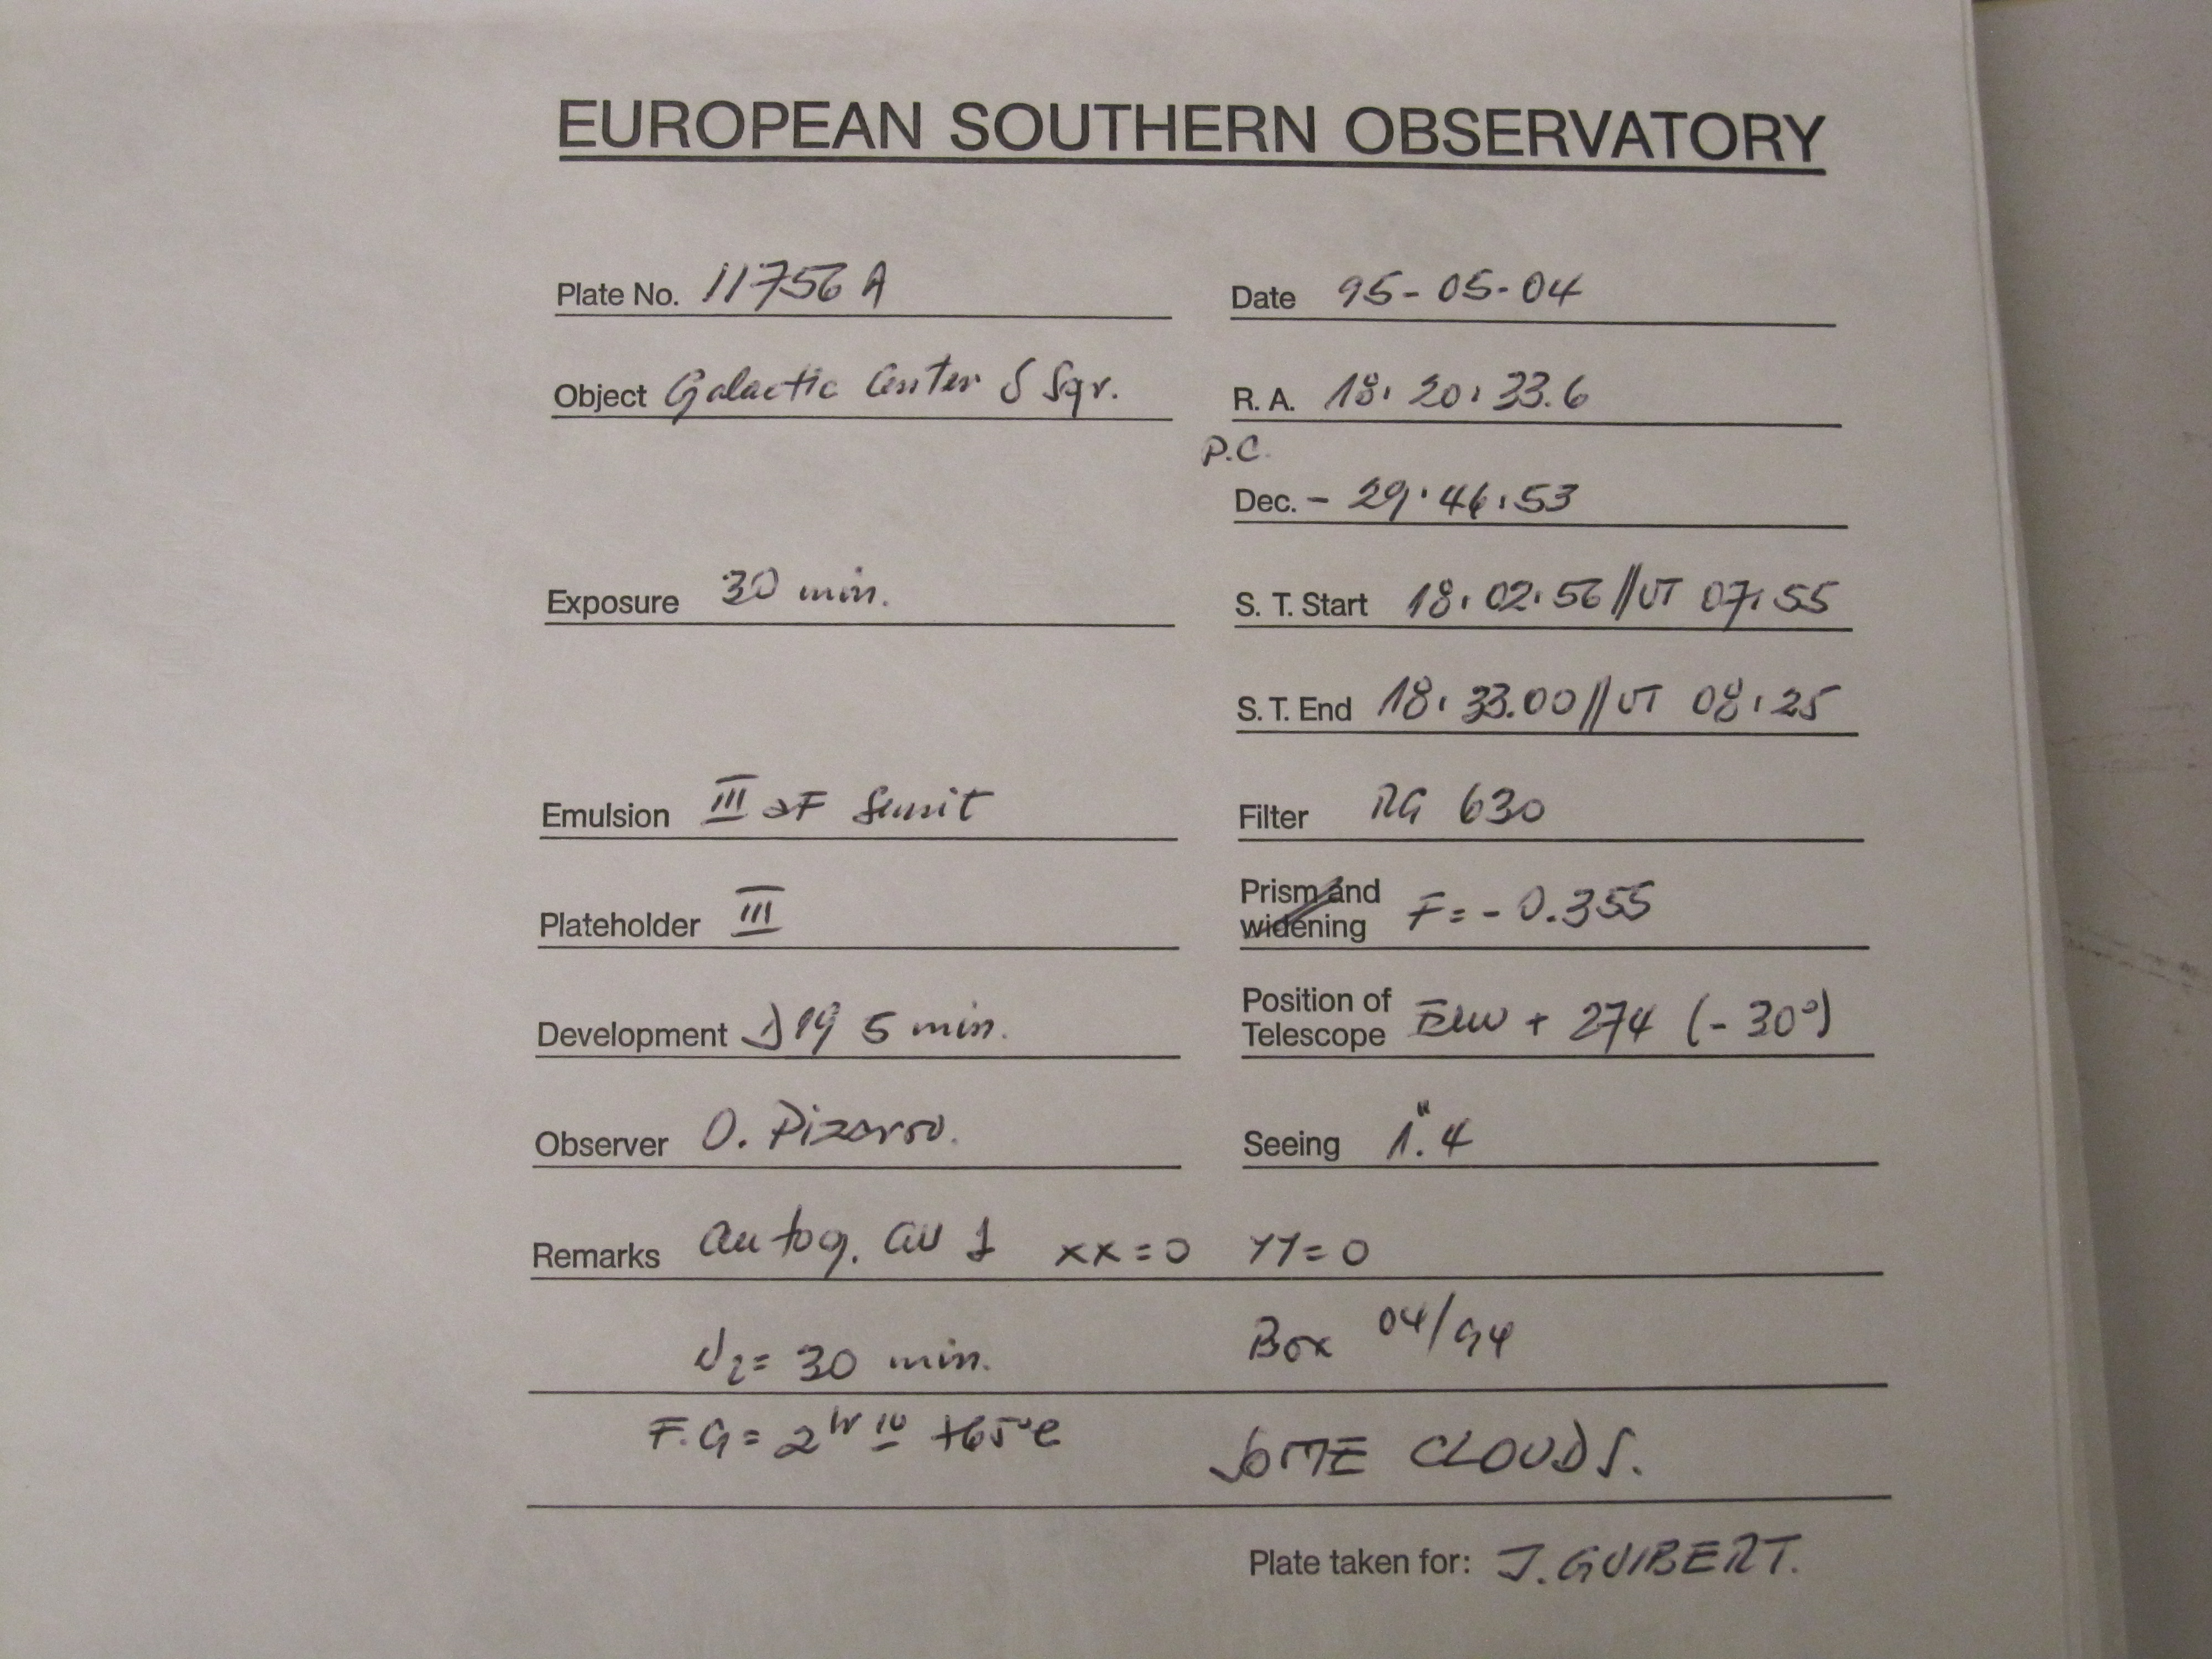 EUROPEAN SOUTHERN OBSERVATORY
Plate No. 11756 A
Date 95-05-04
Object Galactic Center S Sgr.
R. A. 18:20:33.6
P.C.
Dec. - 29:46:53
Exposure 30 min.
S. T. Start 18:02:56 // UT 07:55
S. T. End 18:33.00 // UT 08:25
Emulsion III aF
Filter RG 630
Plateholder III
Prism and widening F = - 0.355
Development D19 5 min.
Position of Telescope + 274 (- 30°)
Observer O. Pizarro.
Seeing 1".4
Remarks autog. xx = 0 YY = 0
= 30 min. Box 04/94
F.G =
SOME CLOUDS.
Plate taken for: J. GUIBERT.